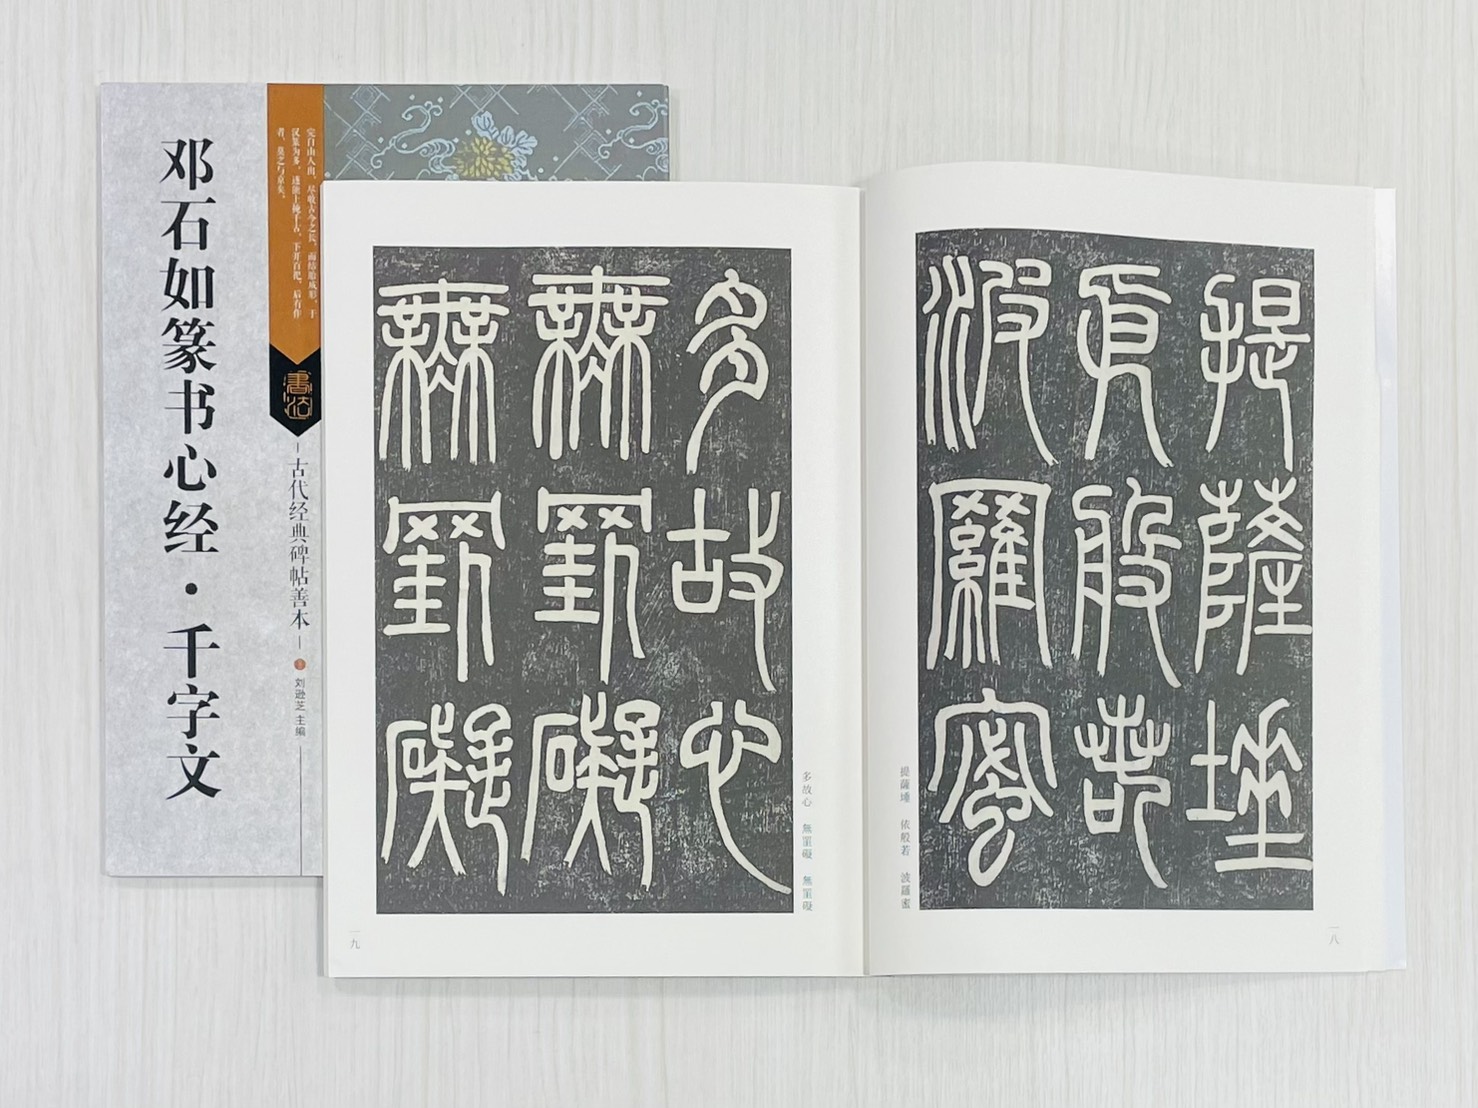 邓石如篆书心经·千字文
完白山人出，尽收古今之长，而结胎成形，于
汉篆为多，遂能上掩千古，下开百祀，后有作
者，莫之与京矣。
書法
古代经典碑帖善本
刘逊芝 主编
提薩埵
依般若
波羅蜜
提薩埵 依般若 波羅蜜
一八
多故心
無罣礙
無罣礙
多故心 無罣礙 無罣礙
一九